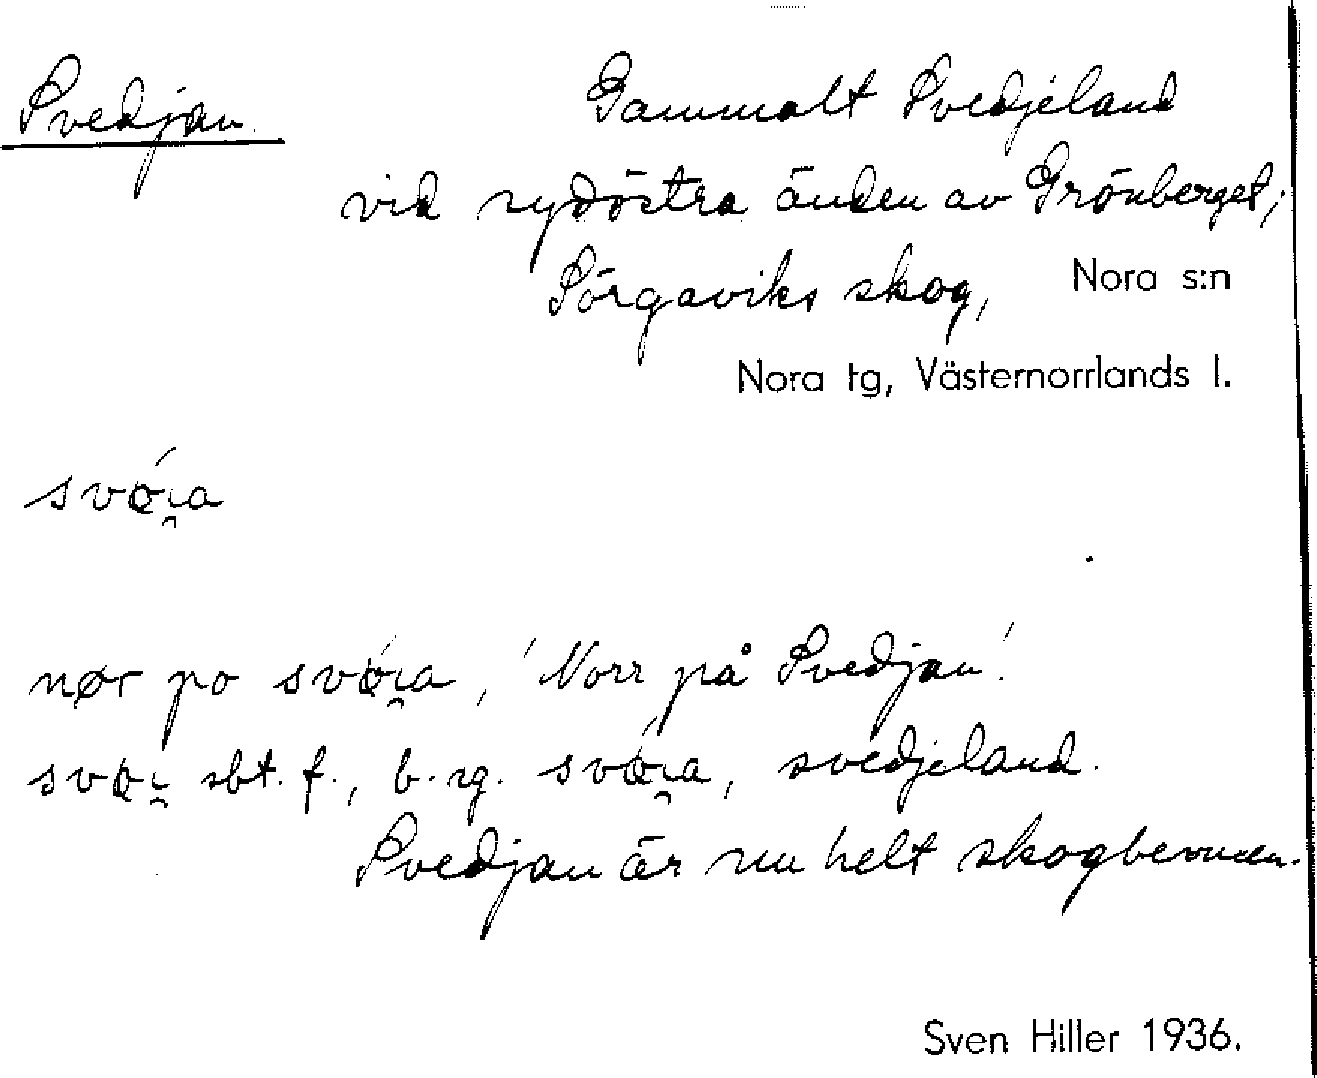 Svedjan.
Gammalt svedjeland
vid sydöstra änden av Grönberget,
Sörgaviks skog, Nora s:n
Nora tg, Västernorrlands l.
svǿi̯a
nør po svǿi̯a, 'Norr på Svedjan'.
svøi̯ sbt. f., b. sg. svǿi̯a, svedjeland.
Svedjan är nu helt skogbevuxen.
Sven Hiller 1936.